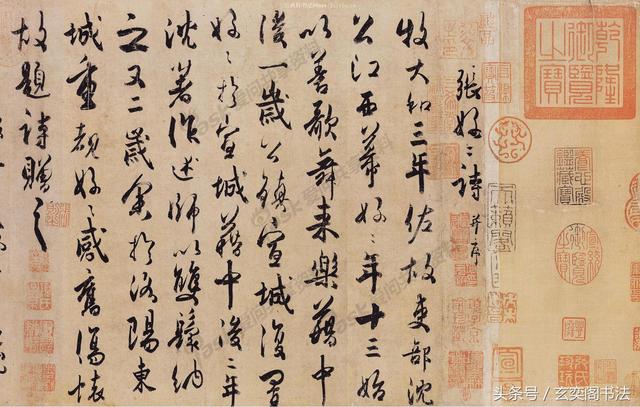 乾隆御覽之寶
天籟閣
張好〻詩 并序
牧大和三年佐故吏部沈
公江西幕好〻年十三始
以善歌舞来樂籍中
後一歲公鎮宣城復置
好〻於宣城籍中後二年
沈著作述師以雙鬟納
之又二歲余於洛陽東
城重覩好〻感舊傷懷
故題詩贈之
头条号 / 玄奕阁书法